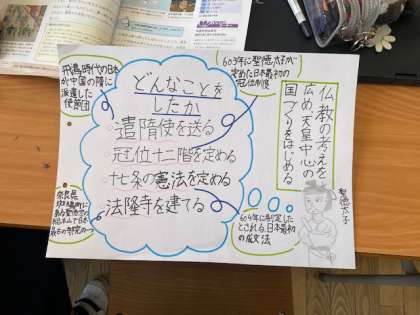 仏教の考えを
広め、天皇中心の
国づくりをはじめる
聖徳太子
どんなことを
したか
遣隋使を送る
冠位十二階を定める
十七条の憲法を定める
法隆寺を建てる
飛鳥時代の日本
が中国の隋に
派遣した
使節団
603年に聖徳太子が
定めた日本最初の
冠位制度
604年に制定した
とされる、日本最初
の成文法
奈良県